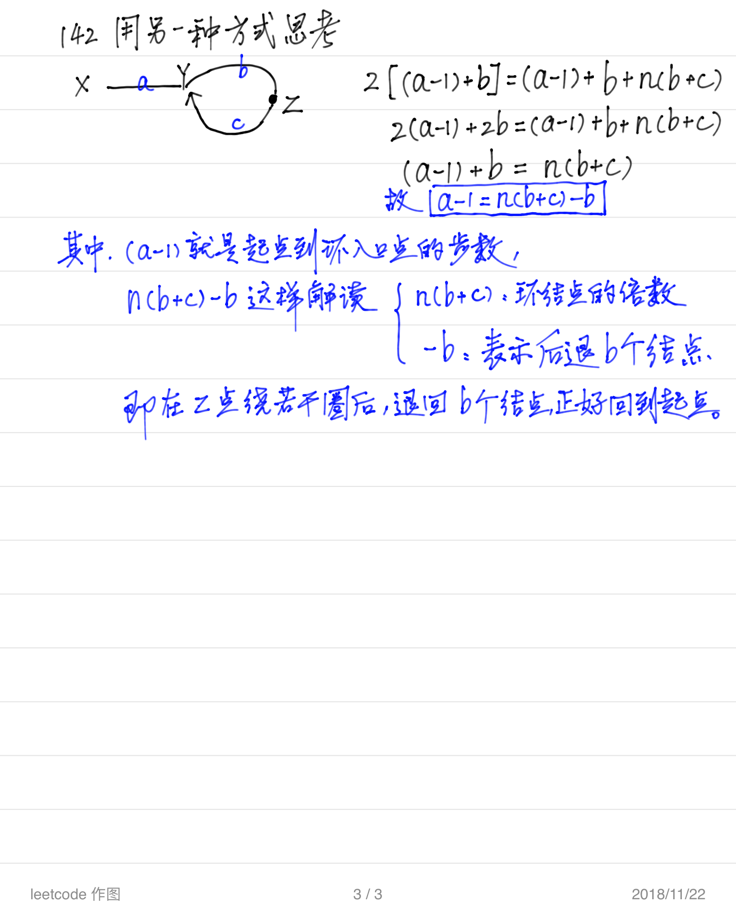 142 用另一种方式思考
X a Y b Z c
2[(a-1)+b]=(a-1)+b+n(b+c)
2(a-1)+2b=(a-1)+b+n(b+c)
(a-1)+b=n(b+c)
故 a-1=n(b+c)-b
其中,(a-1)就是起点到环入口点的步数,
n(b+c)-b这样解读 { n(b+c):环结点的倍数
-b:表示后退b个结点、
即在Z点绕若干圈后,退回b个结点,正好回到起点。
leetcode 作图 3 / 3 2018/11/22